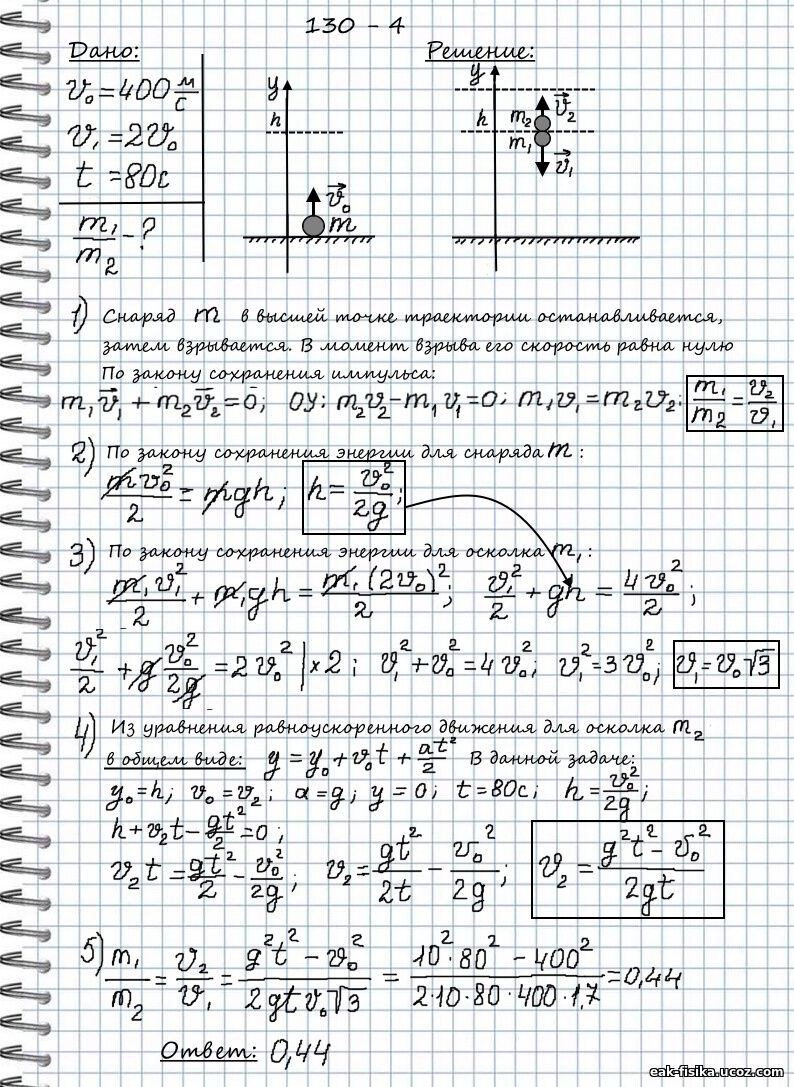 130 - 4
Дано:
v₀ = 400 м/с
v₁ = 2v₀
t = 80с
m₁/m₂ - ?
Решение:
y
h
v⃗₀
m
y
h
m₂
v⃗₂
m₁
v⃗₁
1) Снаряд m в высшей точке траектории останавливается,
затем взрывается. В момент взрыва его скорость равна нулю
По закону сохранения импульса:
m₁v⃗₁ + m₂v⃗₂ = 0; ОУ: m₂v₂ - m₁v₁ = 0; m₁v₁ = m₂v₂; m₁/m₂ = v₂/v₁
2) По закону сохранения энергии для снаряда m :
mv₀²/2 = mgh; h = v₀²/2g;
3) По закону сохранения энергии для осколка m₁:
m₁v₁²/2 + m₁gh = m₁(2v₀)²/2; v₁²/2 + gh = 4v₀²/2;
v₁²/2 + g v₀²/2g = 2v₀² | ×2; v₁² + v₀² = 4v₀²; v₁² = 3v₀²; v₁ = v₀√3
4) Из уравнения равноускоренного движения для осколка m₂
в общем виде: y = y₀ + v₀t + at²/2 В данной задаче:
y₀ = h; v₀ = v₂; a = g; y = 0; t = 80с; h = v₀²/2g;
h + v₂t - gt²/2 = 0;
v₂t = gt²/2 - v₀²/2g; v₂ = gt²/2t - v₀²/2g; v₂ = (g²t² - v₀²)/2gt
5) m₁/m₂ = v₂/v₁ = (g²t² - v₀²)/(2gtv₀√3) = (10²·80² - 400²)/(2·10·80·400·1,7) = 0,44
Ответ: 0,44
eak-fisika.ucoz.com